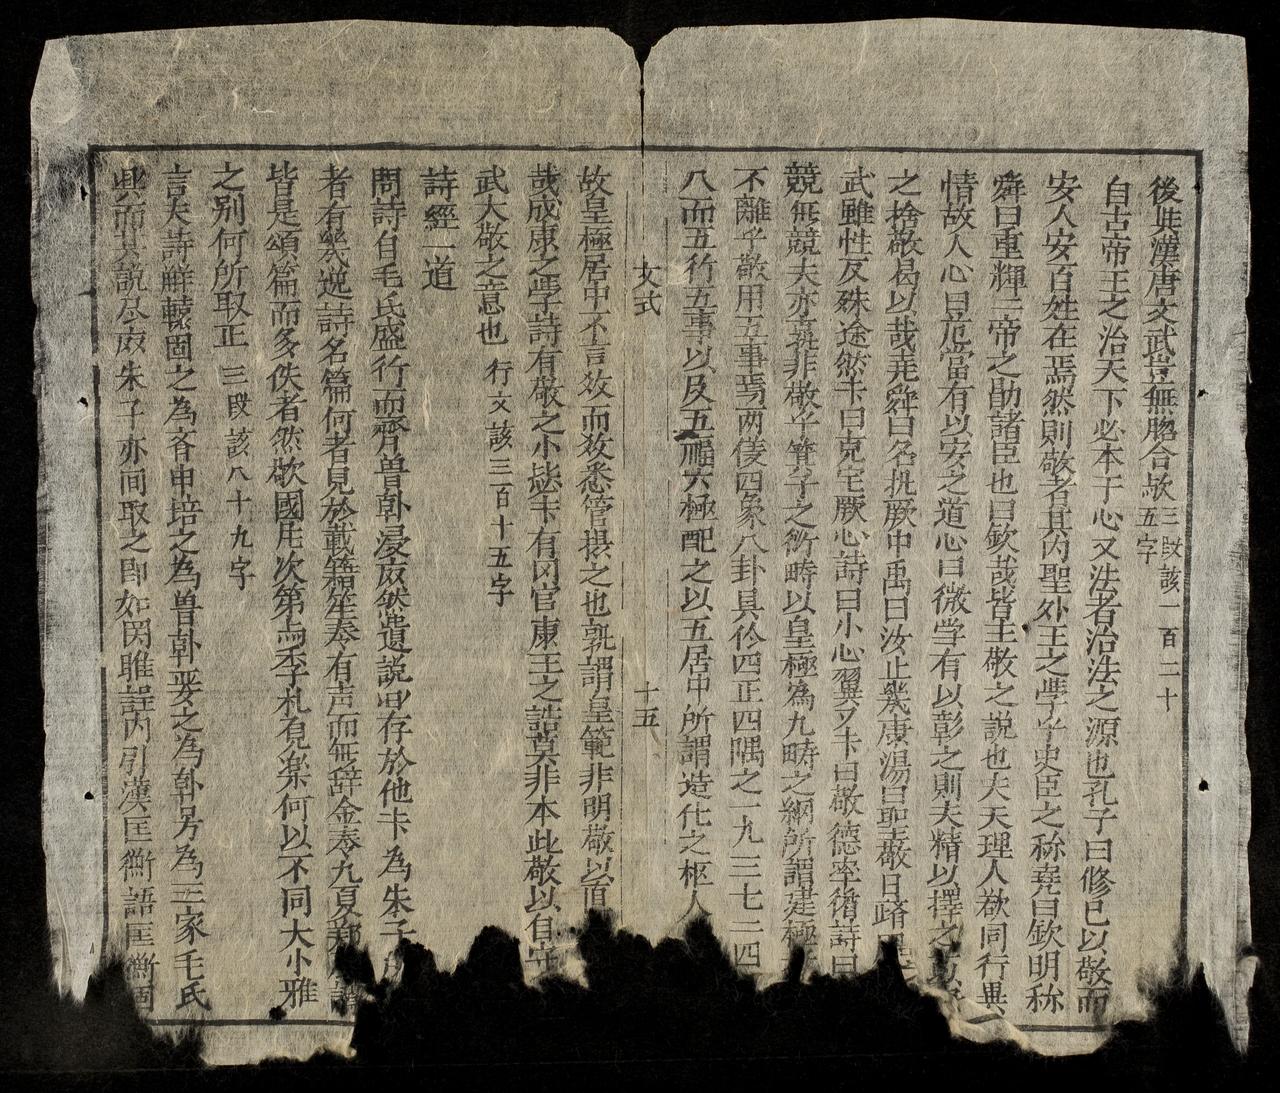 後與漢唐文武豈無脗合欤三段該一百二十五字
自古帝王之治天下必本于心又法者治法之源也孔子曰修已以敬而
安人安百姓在焉然則敬者其内聖外王之斈乎史臣之称堯曰欽明称
舜曰重輝二帝之勖諸臣也曰欽哉皆主敬之説也夫天理人欲同行異
情故人心曰危當有以安之道心曰微斈有以彰之則夫精以擇之
之捨敬曷以哉尭舜曰允执厥中禹曰汝止幾康湯曰聖敬日躋
武雖性反殊途然卡曰克宅厥心詩曰小心翼又卡曰敬德率循詩曰
競無競夫亦孰非敬乎箕子之衍畴以皇極為九畴之綱所謂建極
不離乎敬用五事焉两儀四象八卦具於四正四隅之一九三七二四
八而五行五事以及五福六極配之以五居中所謂造化之枢人
文式
十五
故皇極居中不言效而效悉管摄之也孰謂皇範非明敬以直
哉成康之斈詩有敬之小毖卡有冏官康王之誥莫非本此敬以有守
武大敬之意也 行文該三百十五字
詩經一道
問詩自毛氏盛行而齊鲁韩浸废然遺説旧存於他卡為朱子
者有幾逸詩名篇何者見於載籍笙奏有声而無辞金奏九夏郑
皆是頌篇而多佚者然欤國风次第与季札观楽何以不同大小雅
之别何所取正 三段該八十九字
言夫詩觧轅固之為斉申培之為鲁韩婴之為韩另為三家毛氏
興而其説尽废朱子亦间取之即如関雎註内引漢匡衡語匡衡固